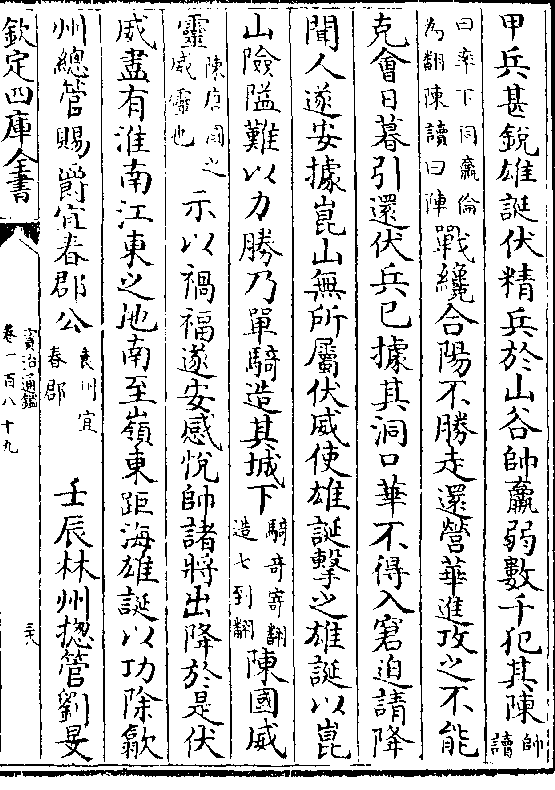 甲兵甚銳雄誕伏精兵於山谷帥羸弱數千犯其陳帥讀
曰率下同羸倫為翻陳讀曰陣戰纔合陽不勝走還營華進攻之不能
克會日暮引還伏兵已據其洞口華不得入窘迫請降
聞人遂安據崑山無所屬伏威使雄誕擊之雄誕以崑
山險隘難以力勝乃單騎造其城下騎奇寄翻造七到翻陳國威
靈陳唐國之威靈也示以禍福遂安感悅帥諸將出降於是伏
威盡有淮南江東之地南至嶺東距海雄誕以功除歙
州總管賜爵宜春郡公袁州宜春郡壬辰林州摠管劉旻
欽定四庫全書
資治通鑑
卷一百八十九